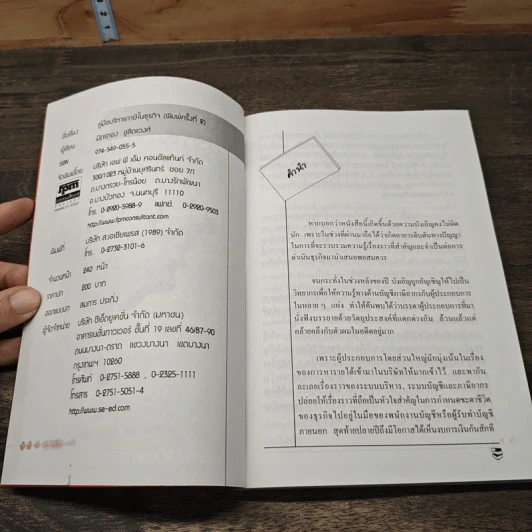 ชื่อเรื่อง คู่มือบริหารภาษีในธุรกิจ (พิมพ์ครั้งที่ 2)
ผู้เขียน ฉัตรทอง ชูสิตแวงค์
ISBN 974-549-055-5
จัดพิมพ์โดย บริษัท เอฟ พี เอ็ม คอนซัลแท้นท์ จำกัด
fpm 300/1023 หมู่บ้านบุศรินทร์ ซอย 7/1
ถ.บางกรวย-ไทรน้อย ต.บางรักพัฒนา
อ.บางบัวทอง จ.นนทบุรี 11110
โทร. 0-2920-5988-9 แฟกซ์. 0-2920-9503
http://www.fpmconsultant.com
พิมพ์ที่ บริษัท ส.เอเซียเพรส (1989) จำกัด
โทร. 0-2732-3101-6
จำนวนหน้า 240 หน้า
ราคาปก 200 บาท
ออกแบบปก สมการ ประถัง
ผู้จัดจำหน่าย บริษัท ซีเอ็ดยูเคชั่น จำกัด (มหาชน)
อาคารเนชั่นทาวเวอร์ ชั้นที่ 19 เลขที่ 46/87-90
ถนนบางนา-ตราด แขวงบางนา เขตบางนา
กรุงเทพฯ 10260
โทรศัพท์ 0-2751-5888 , 0-2325-1111
โทรสาร 0-2751-5051-4
http://www.se-ed.com
คำนำ
หากบอกว่าหนังสือนี้เกิดขึ้นด้วยความบังเอิญคงไม่ผิด
นัก เพราะในช่วงที่ผ่านมาถือได้ว่าเกิดอาการตีบตันทางปัญญา
ในการที่จะรวบรวมความรู้เรื่องราวที่สำคัญและจำเป็นต่อการ
ดำเนินธุรกิจมานำเสนอพอสมควร
จนกระทั่งในช่วงหลังของปี บังเอิญถูกอัญเชิญให้ไปเป็น
วิทยากรเพื่อให้ความรู้ทางด้านบัญชีภาษีอากรกับผู้ประกอบการ
ในหลาย ๆ แห่ง ทำให้ค้นพบได้ว่าบรรดาผู้ประกอบการที่มา
นั่งฟังบรรยายด้วยวัตถุประสงค์ที่แตกต่างกัน ล้วนแล้วแต่
คล้ายคลึงกับตัวผมในอดีตอยู่มาก
เพราะผู้ประกอบการโดยส่วนใหญ่นักมุ่งเน้นในเรื่อง
ของการหารายได้เข้ามาในบริษัทให้มากเข้าไว้ และพากัน
ละเลยเรื่องราวของระบบบริหาร, ระบบบัญชีและภาษีอากร
ปล่อยให้เรื่องราวที่ถือเป็นหัวใจสำคัญในการกำหนดชะตาชีวิต
ของธุรกิจไปอยู่ในมือของพนักงานบัญชีหรือผู้รับทำบัญชี
ภายนอก สุดท้ายปลายปีถึงมีโอกาสได้เห็นงบการเงินกันสักที